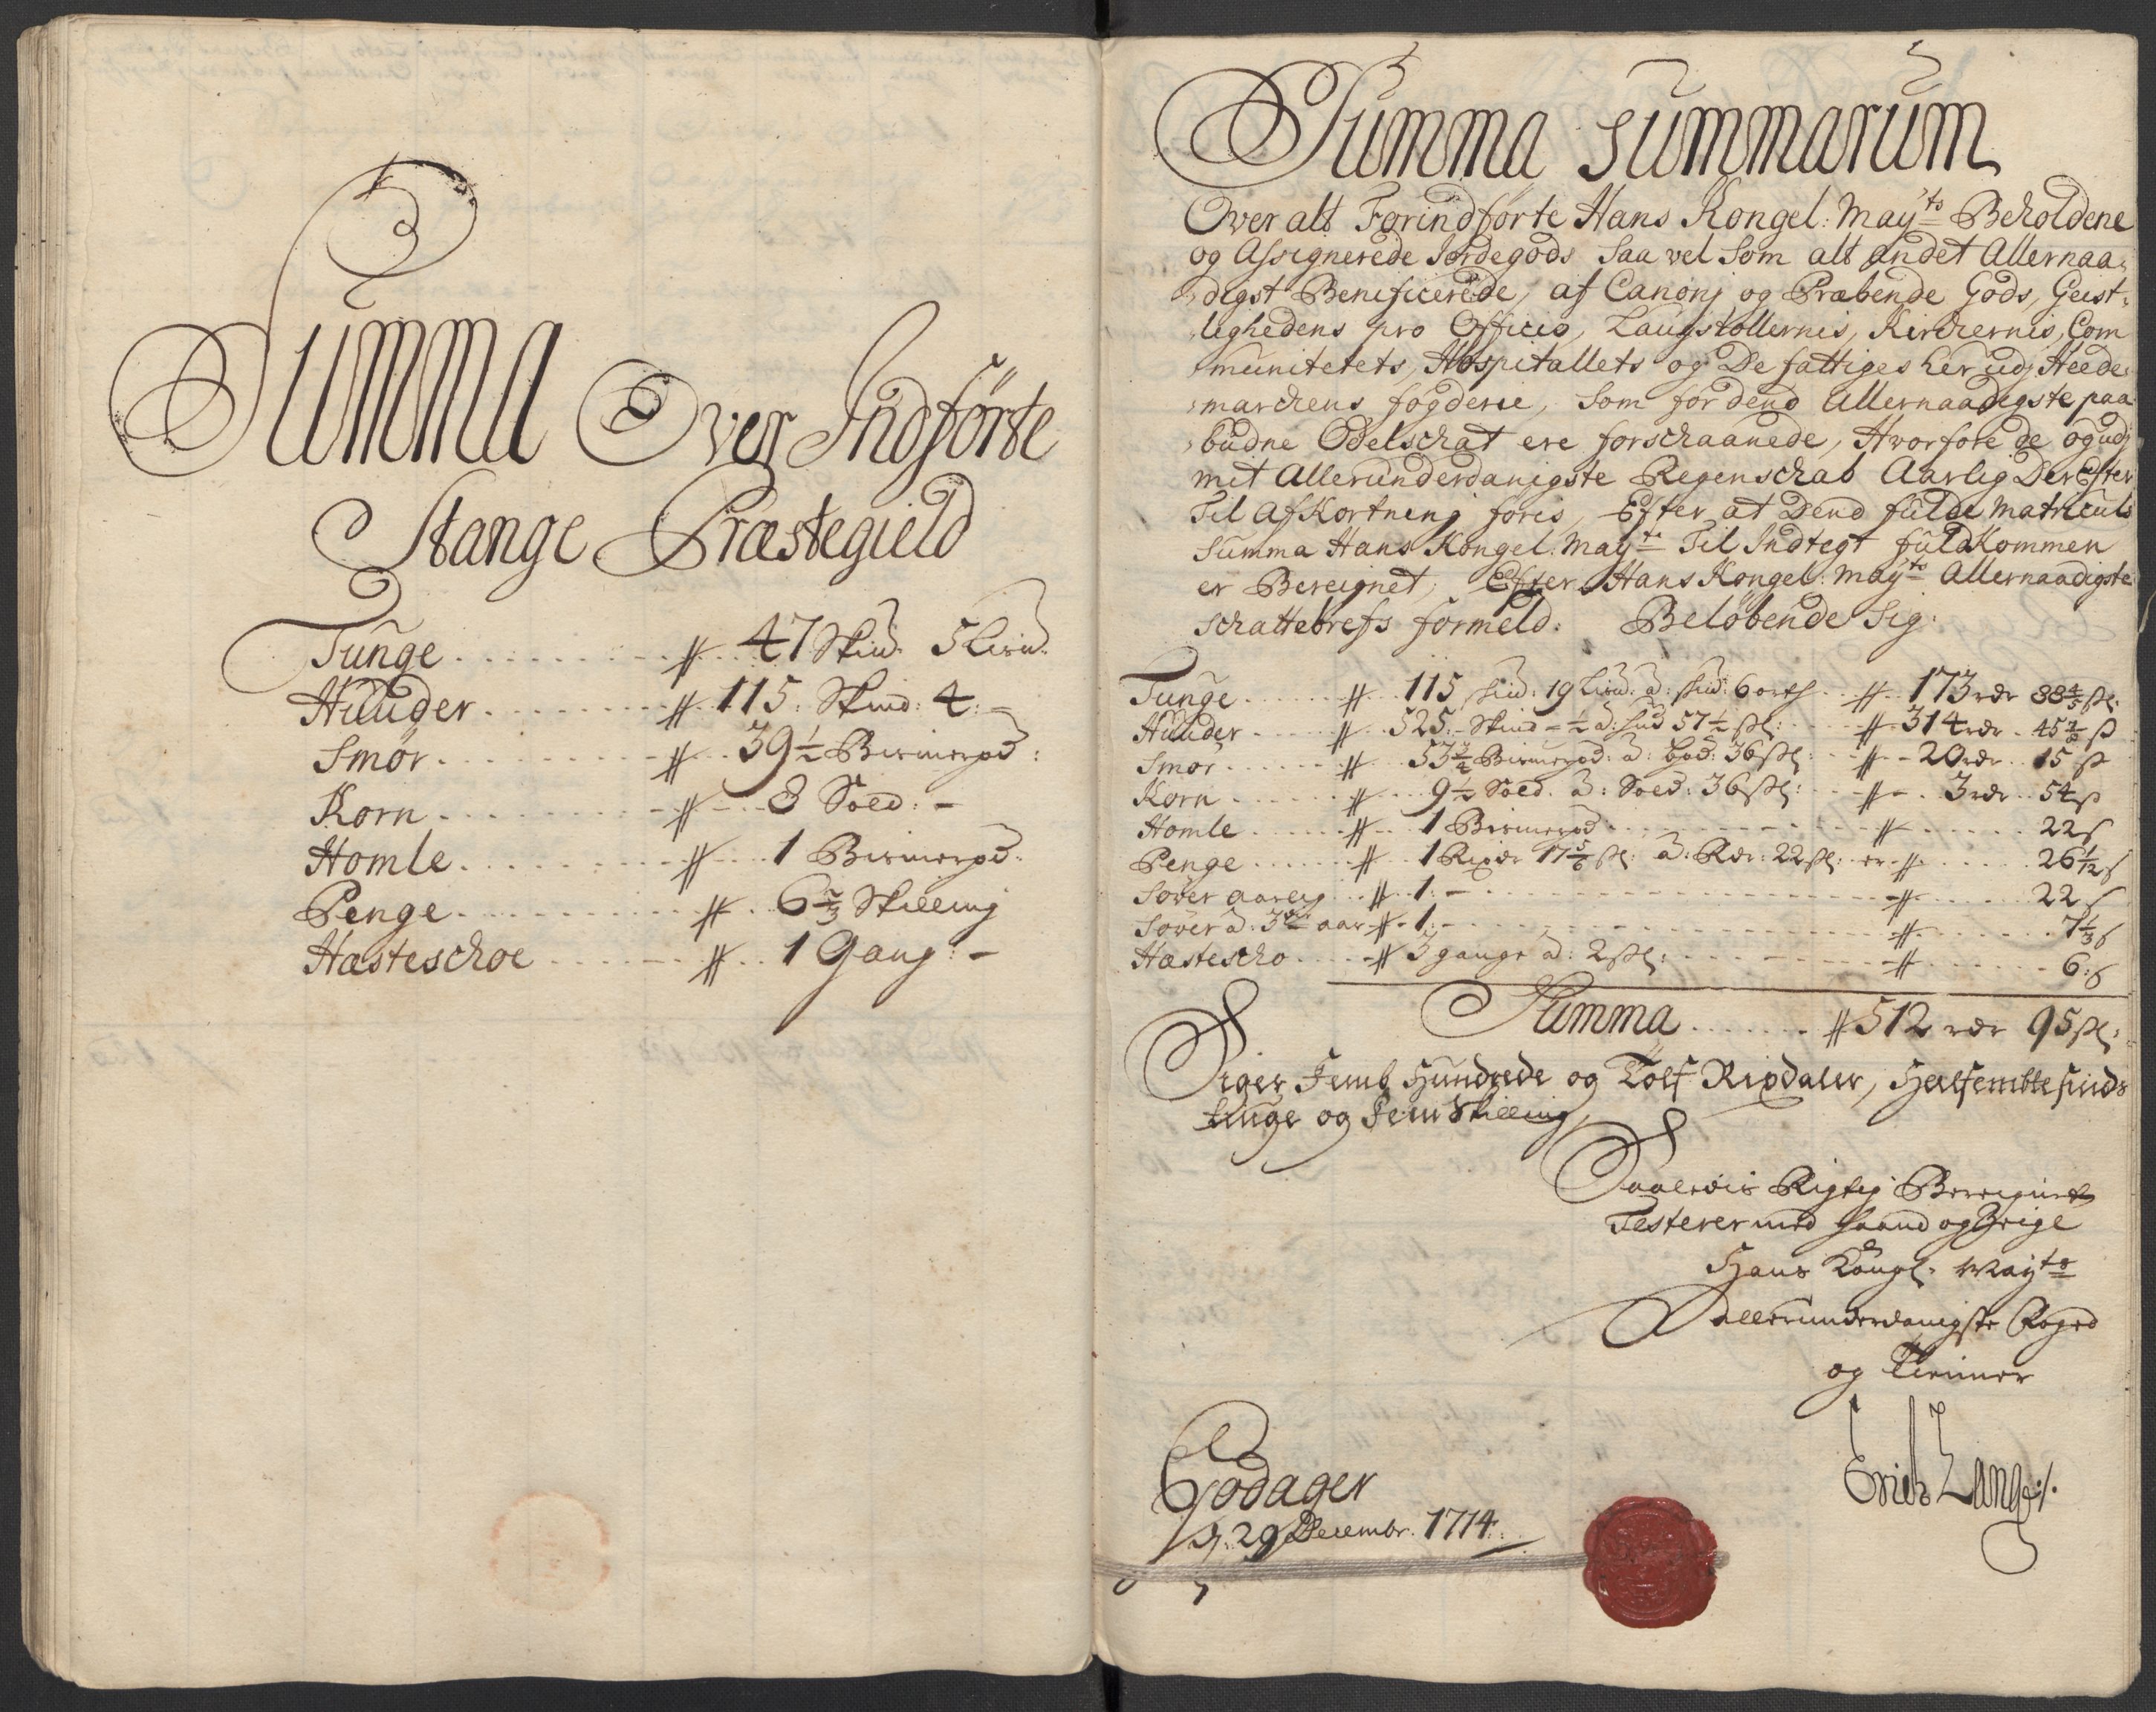 Summa Over Indförte
Stange Præstegield
Tunge 47 Skind. 5 Lisu.
Huuder 115: Skind: 4: -
Smör 39½ Bismerpd:
Korn 8 Soed: -
Homle 1 Bismerpd:
Penge 6⅔ Skilling
Hæsteschoe 1 Gang: -
Summa Summarum
Over alt Forindförte Hans Kongel: Mayts Beholdene
og Assignerede Jordegods Saa vel Som alt andet Allernaa-
digst Benificerede, af Canonj og Præbende Gods, Geist-
lighedens pro Officio, Laugstollernis, Kirckernis, Com
munitetets, Hospitallets og De fattiges her udj Heede-
marckens fogderie, Som for dend Allernaadigste paa
budne Odelschat ere forschaanede, Hvorfore de og udj
mit Allerunderdanigste Regenschab Aarlig Derefter
Til Afkortning föris, Efter at Dend fulde Matriculs
Summa Hans Kongel: Mayts Til Indtegt fuldkommen
er Bereignet, Efter Hans Kongel: Mayts Allernaadigste
Schattebrefs formeld: Belöbende Sig:
Tunge 115 skud: 19 Lisu: a: skud: 6 orth 173 rdr 88⅘ sk:
Huuder 525:- Skind - ½ a: hud 57½ sk: 314 rdr 45⅞ s
Smör 53¾ Bismerpd: a: bpd: 36 sk: 20 rdr 15 s
Korn 9½ Soed. a: Soed: 36 sk: 3 rdr 54 s
Homle 1 Bismerpd 22 s
Penge 1 Rixdr 17⅚ sk: a: Rdr: 22 sk: er 26 1/12 s
Söver aarlig 1:- 22 s
Söver a. 3de aar 1:- 7⅓ s
Hæstescho 3 gange a: 2 sk: 6: s
Summa 512 rdr 95 sk:
Siger Femb Hundrede og Tolf Rixdaler, Helfembtesinds
tiuge og Fem Skilling
Saaledis Rigtig Bereignet
Testerer med Haand og Zeigl
Hans Kongl: Mayts
Allerunderdanigste Foged
og Tienner
Erich Lang:/.
Godager
d: 29 Decembr. 1714.